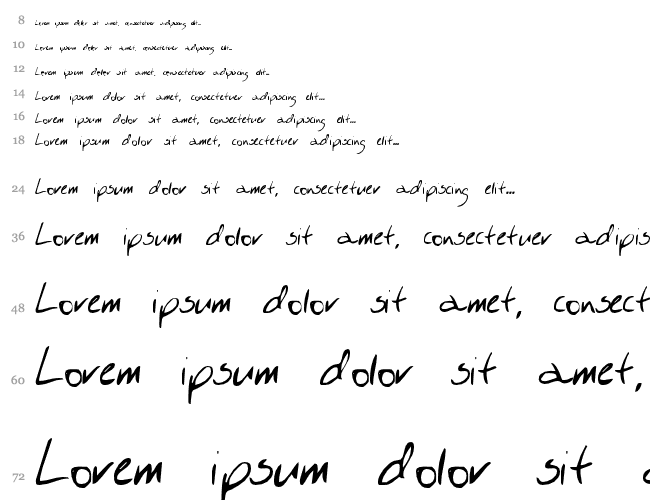 8 Lorem ipsum dolor sit amet, consectetuer adipiscing elit...
10 Lorem ipsum dolor sit amet, consectetuer adipiscing elit...
12 Lorem ipsum dolor sit amet, consectetuer adipiscing elit...
14 Lorem ipsum dolor sit amet, consectetuer adipiscing elit...
16 Lorem ipsum dolor sit amet, consectetuer adipiscing elit...
18 Lorem ipsum dolor sit amet, consectetuer adipiscing elit...
24 Lorem ipsum dolor sit amet, consectetuer adipiscing elit...
36 Lorem ipsum dolor sit amet, consectetuer adipis
48 Lorem ipsum dolor sit amet, consect
60 Lorem ipsum dolor sit amet,
72 Lorem ipsum dolor sit